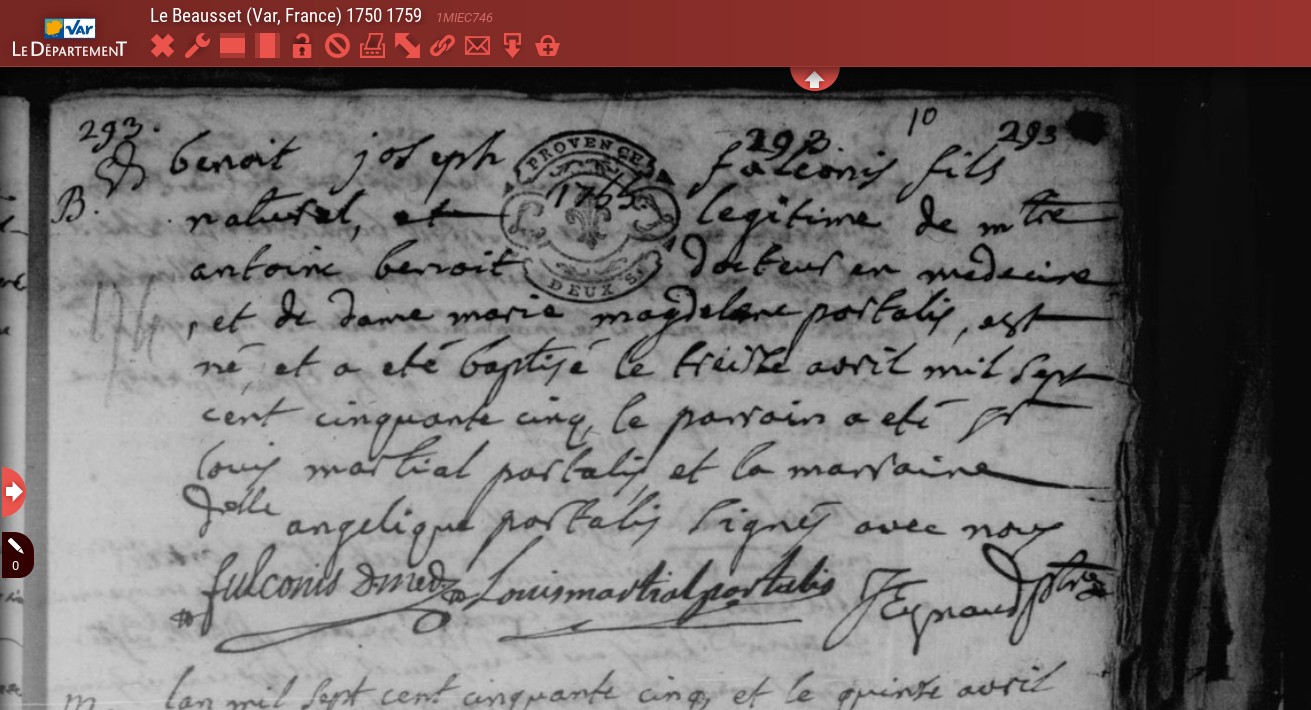 Le Beausset (Var, France) 1750 1759 1MIEC746
Var
LE DÉPARTEMENT
293. 10
292 293
B. benoit joseph fulconis fils
PROVENCE
1755
DEUX S.
naturel, et legitime de mtre
antoine benoit docteur en medecine
, et de dame marie magdelene portalis, est
né, et a eté baptisé le treize avril mil sept
cent cinquante cinq, le parrain a eté sr
louis martial portalis, et la marraine
delle angelique portalis signés avec nous
fulconis dmed Louis martial portalis JEynaud ptre
m. lan mil sept cent cinquante cinq, et le quinze avril
0